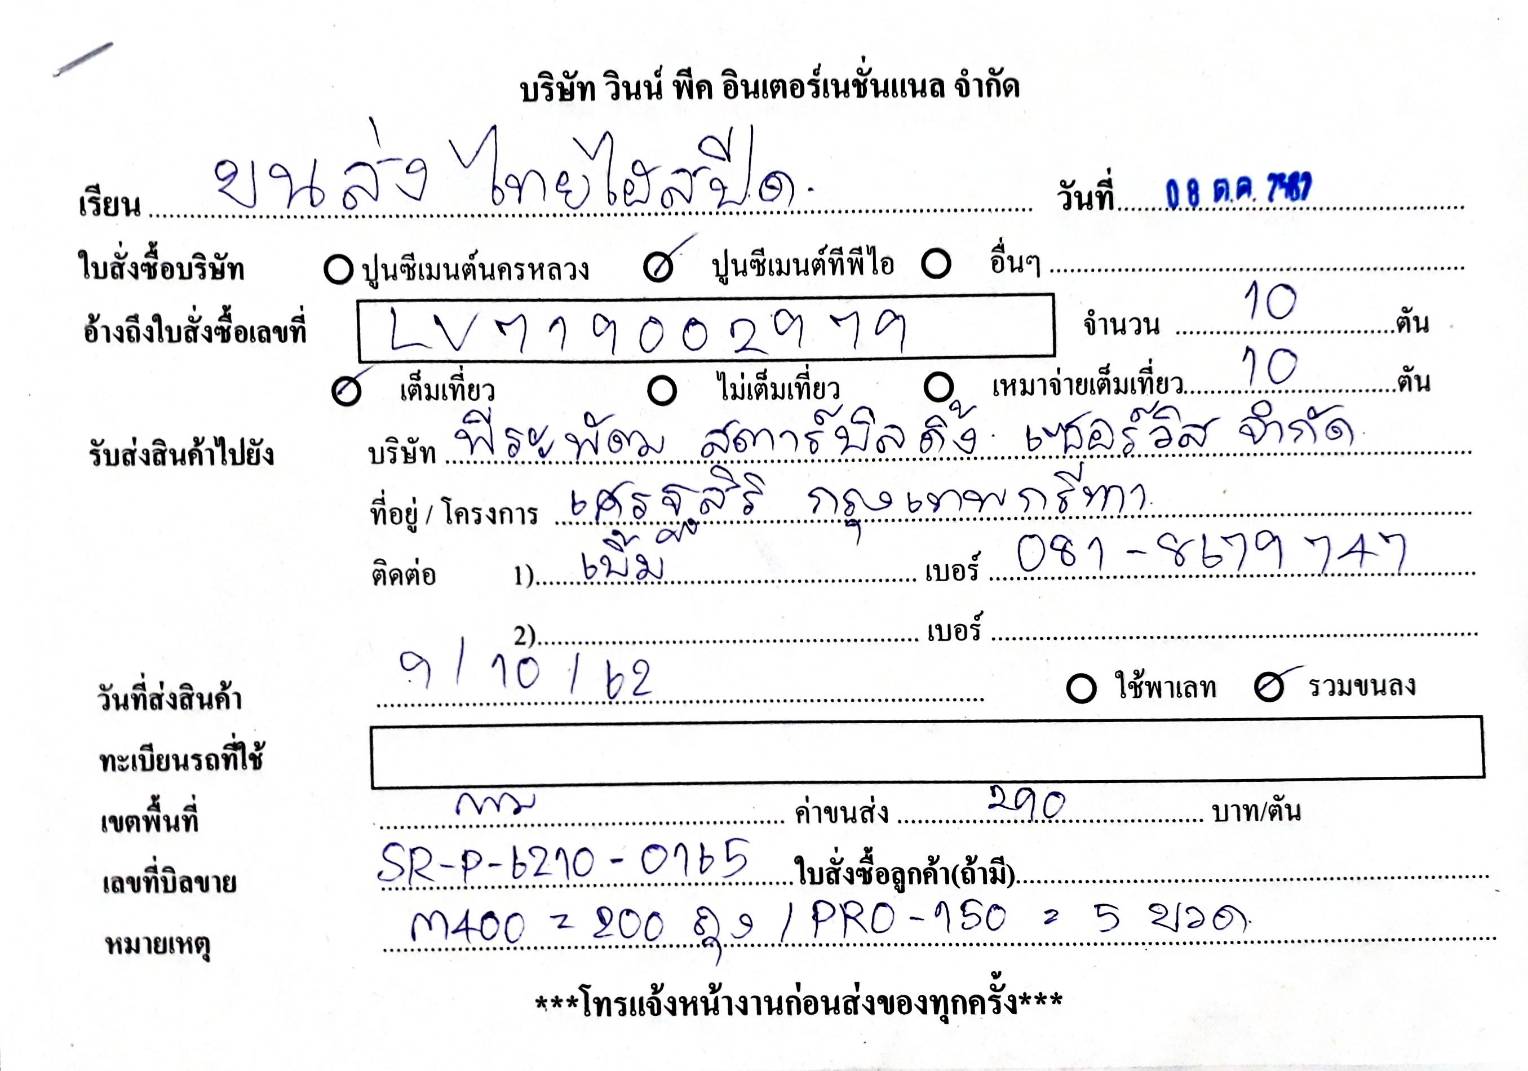 บริษัท วินน์ พีค อินเตอร์เนชั่นแนล จำกัด
เรียน ขนส่ง ไทยไฮสปีด วันที่ 08 ต.ค. 2562
ใบสั่งซื้อบริษัท ปูนซีเมนต์นครหลวง ปูนซีเมนต์ทีพีไอ อื่นๆ
อ้างถึงใบสั่งซื้อเลขที่ LV7719002979 จำนวน 10 ตัน
เต็มเที่ยว ไม่เต็มเที่ยว เหมาจ่ายเต็มเที่ยว 10 ตัน
รับส่งสินค้าไปยัง บริษัท พีระพัฒม สตาร์บิลดิ้ง เซอร์วิส จำกัด
ที่อยู่ / โครงการ เศรษฐสิริ กรุงเทพกรีฑา
ติดต่อ 1) เบิ้ม เบอร์ 081-8679747
2) เบอร์
วันที่ส่งสินค้า 9/10/62 ใช้พาเลท รวมขนลง
ทะเบียนรถที่ใช้
เขตพื้นที่ กทม ค่าขนส่ง 290 บาท/ตัน
เลขที่บิลขาย SR-P-6210-0165 ใบสั่งซื้อลูกค้า(ถ้ามี)
หมายเหตุ M400 = 200 ถุง / PRO-150 = 5 ขวด
***โทรแจ้งหน้างานก่อนส่งของทุกครั้ง***